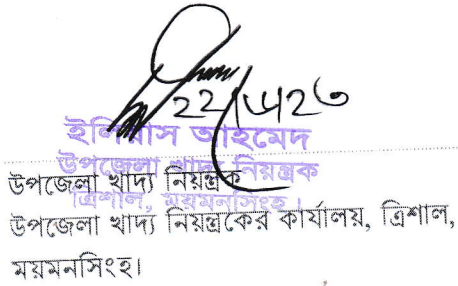 ইলিয়াস আহমেদ
উপজেলা খাদ্য নিয়ন্ত্রক
ত্রিশাল, ময়মনসিংহ।
উপজেলা খাদ্য নিয়ন্ত্রক
উপজেলা খাদ্য নিয়ন্ত্রকের কার্যালয়, ত্রিশাল,
ময়মনসিংহ।